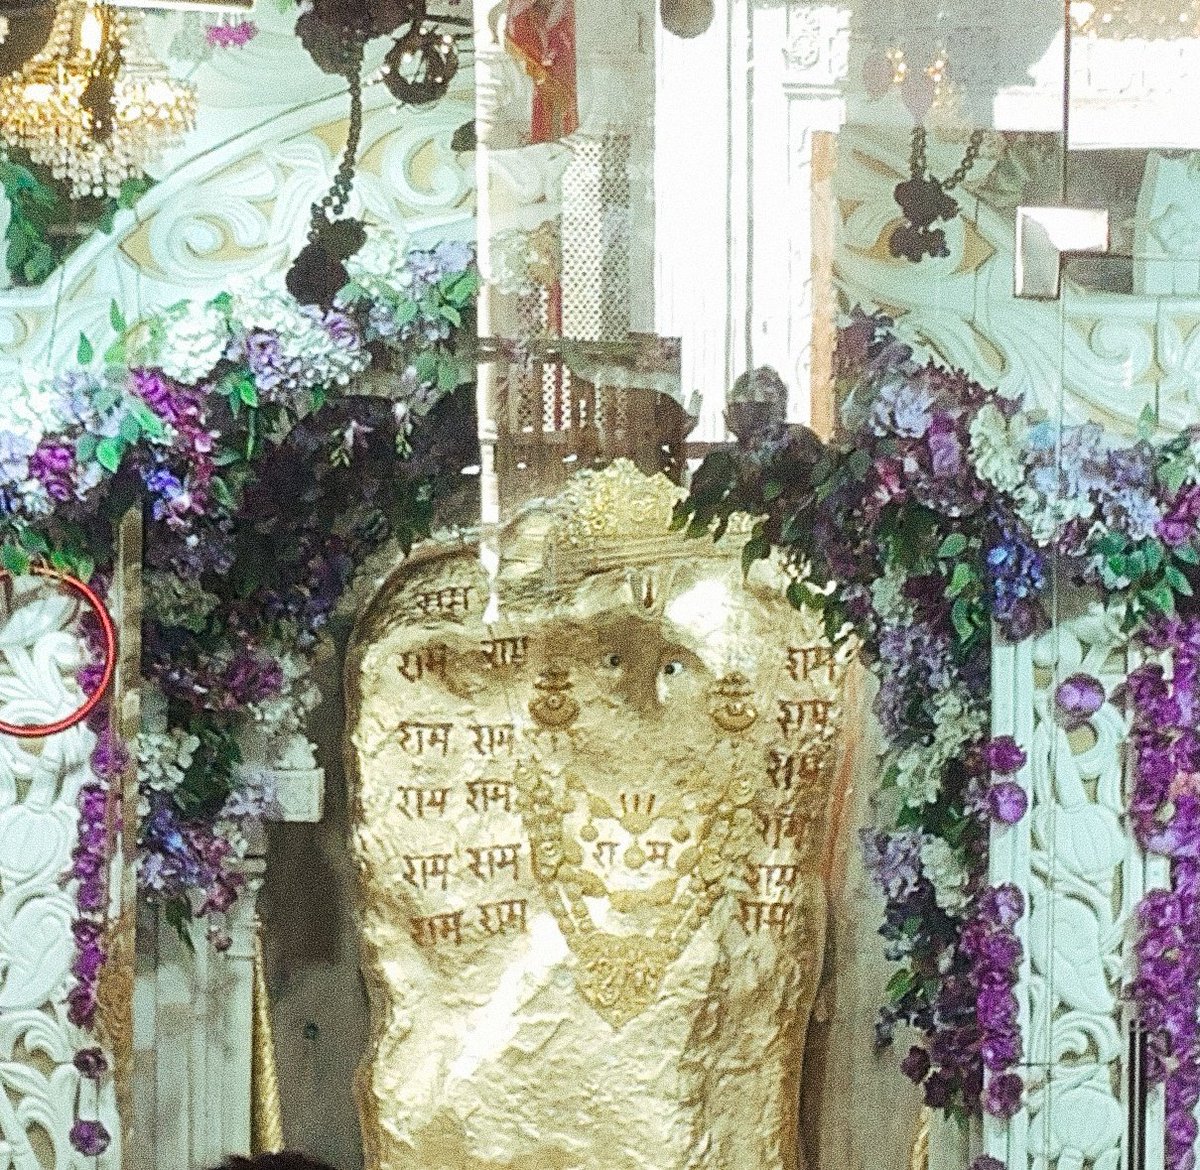 राम
राम राम
राम
राम राम
राम
राम राम
राम
राम
राम राम
राम
राम
राम राम
राम